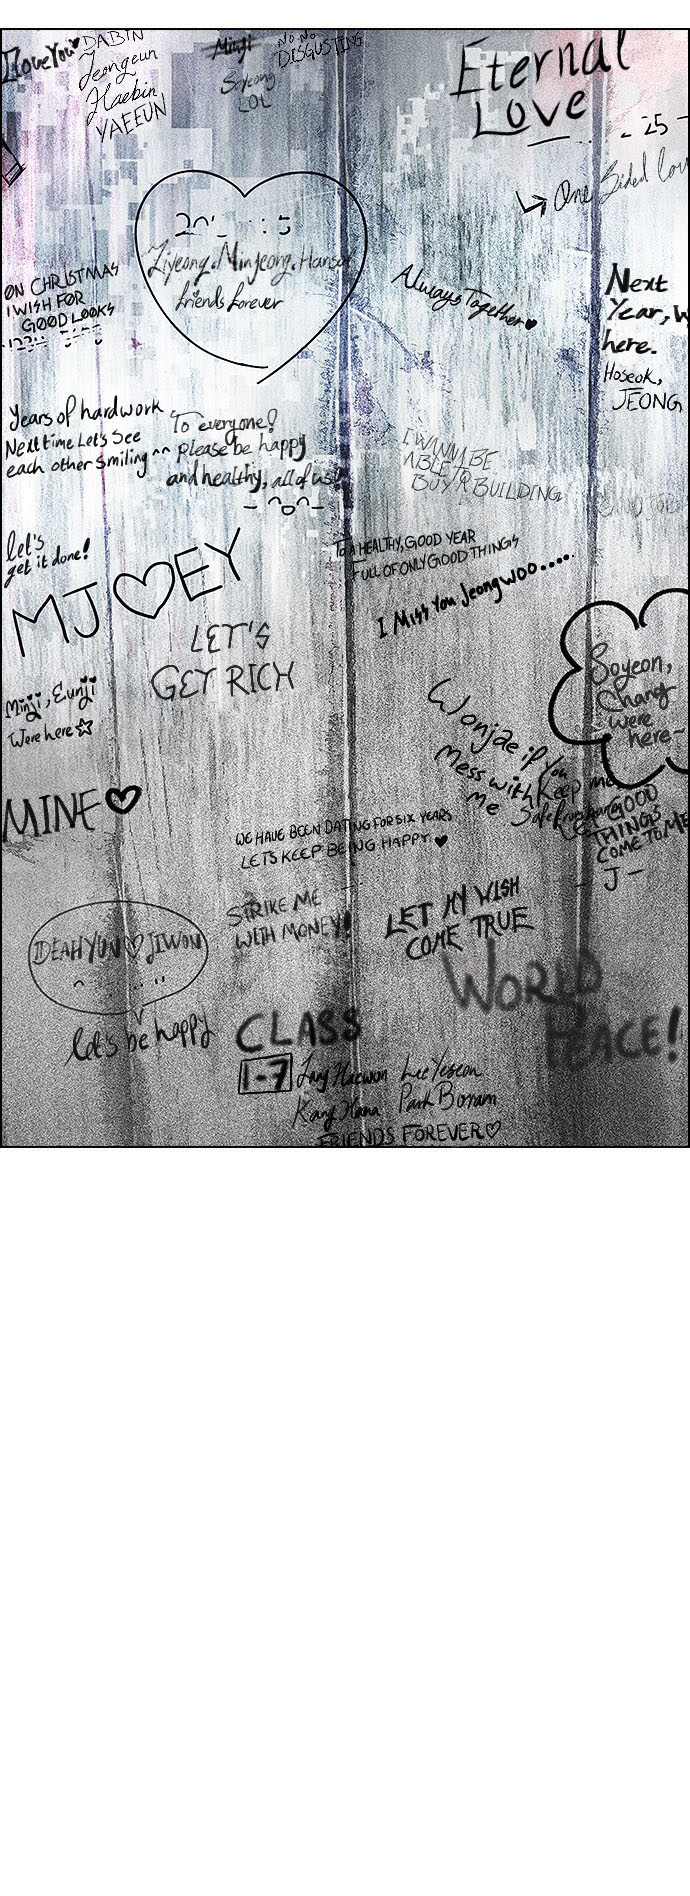 I love You♥
DABIN
Jeongeun
Haebin
YAEEUN
Minji
Soyeong
LOL
NO NO
DISGUSTING
Eternal
Love
- 25 -
One Sided
Ziyeong. Minjeong.
friends forever
ON CHRISTMAS
I WISH FOR
GOOD LOOKS
Always Together♥
Next
Year,
here.
Hoseok,
JEONG
Years of hardwork
Next time Let's See
each other smiling ^^
To everyone!
please be happy
and healthy, all of us!!
I WANNA BE
ABLE TO
BUY A BUILDING
let's
get it done!
MJ♡EY
TO A HEALTHY, GOOD YEAR
FULL OF ONLY GOOD THINGS
I Miss You Jeongwoo.....
LET'S
GET RICH
Minji, Eunji
Were here☆
Soyeon,
Chang
were
here~
Wonjae if you
mess with
me
Keep me
Safe from
GOOD
THINGS
COME TO ME
- J -
MINE♡
WE HAVE BEEN DATING FOR SIX YEARS
LETS KEEP BEING HAPPY ♥
STRIKE ME
WITH MONEY!
LET MY WISH
COME TRUE
DEAHYUN♡JIWON
let's be happy
WORLD
PEACE!
CLASS
1-7
Jang Haewon Lee Yeseon
Kang Hana Park Boram
FRIENDS FOREVER♡